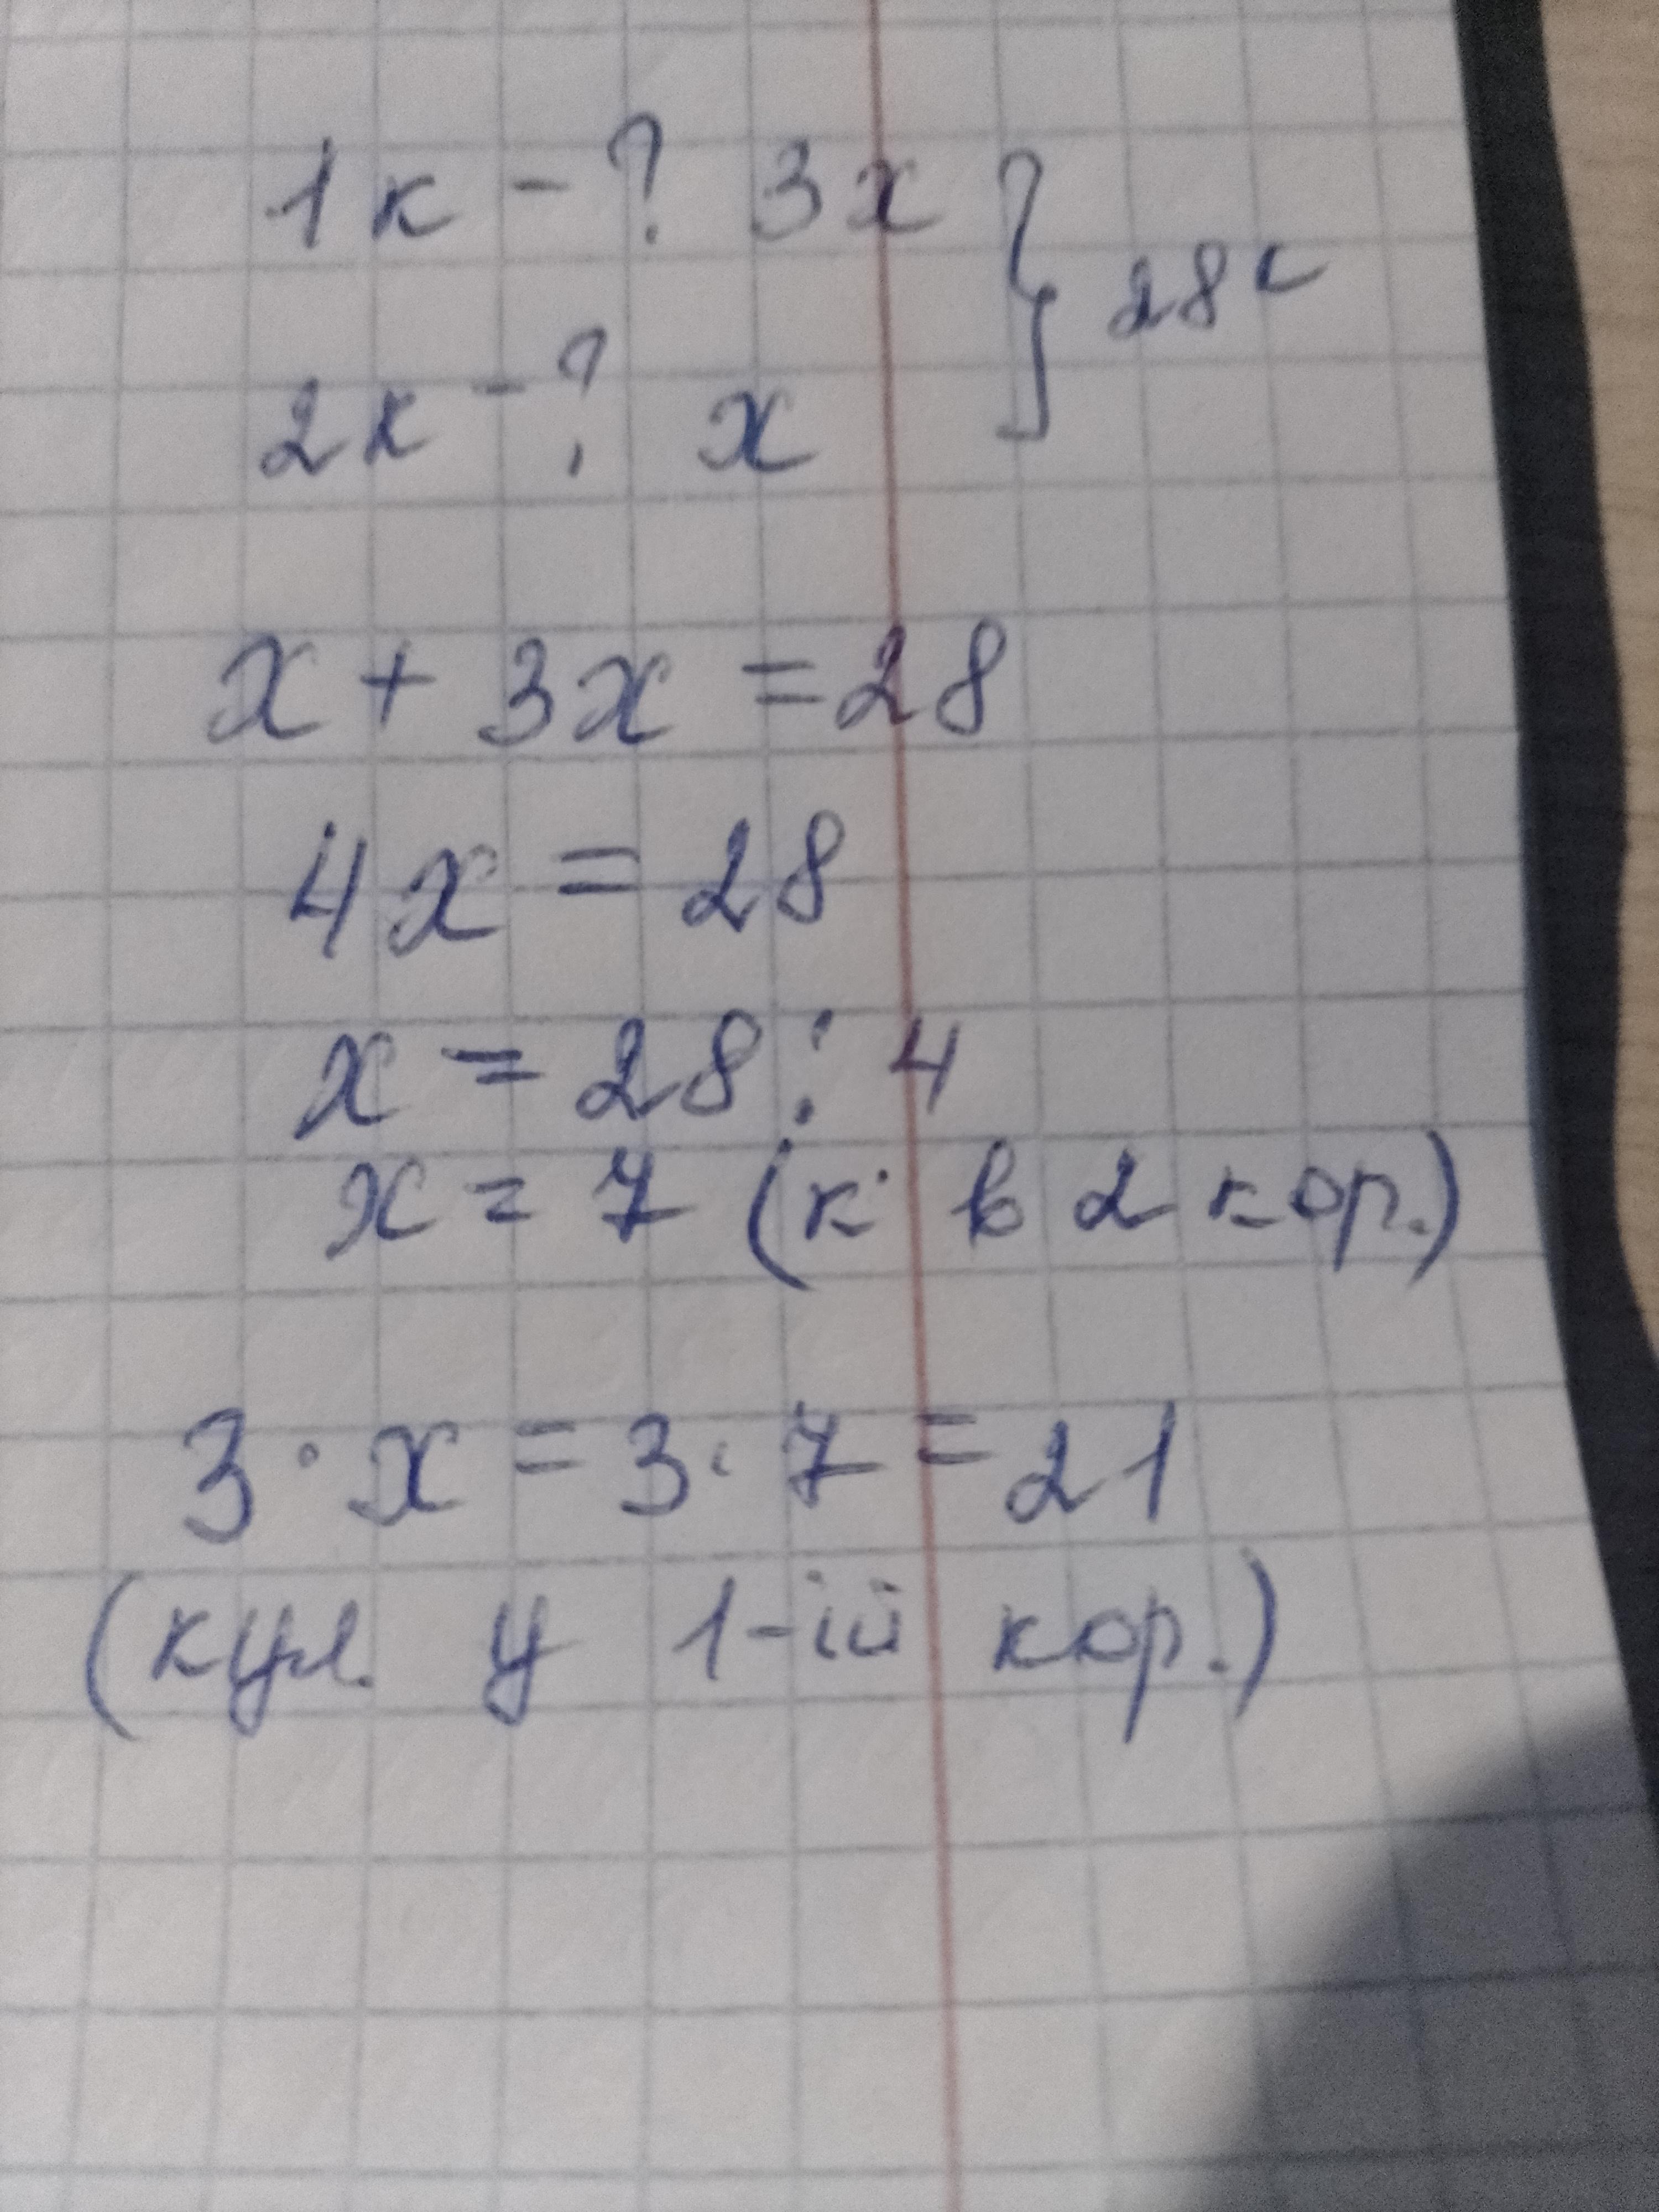 1к - ? 3х } 28к
2к - ? х
х + 3х = 28
4х = 28
х = 28 : 4
х = 7 (к. в 2 кор.)
3 · х = 3 · 7 = 21
(кул. у 1-ій кор.)